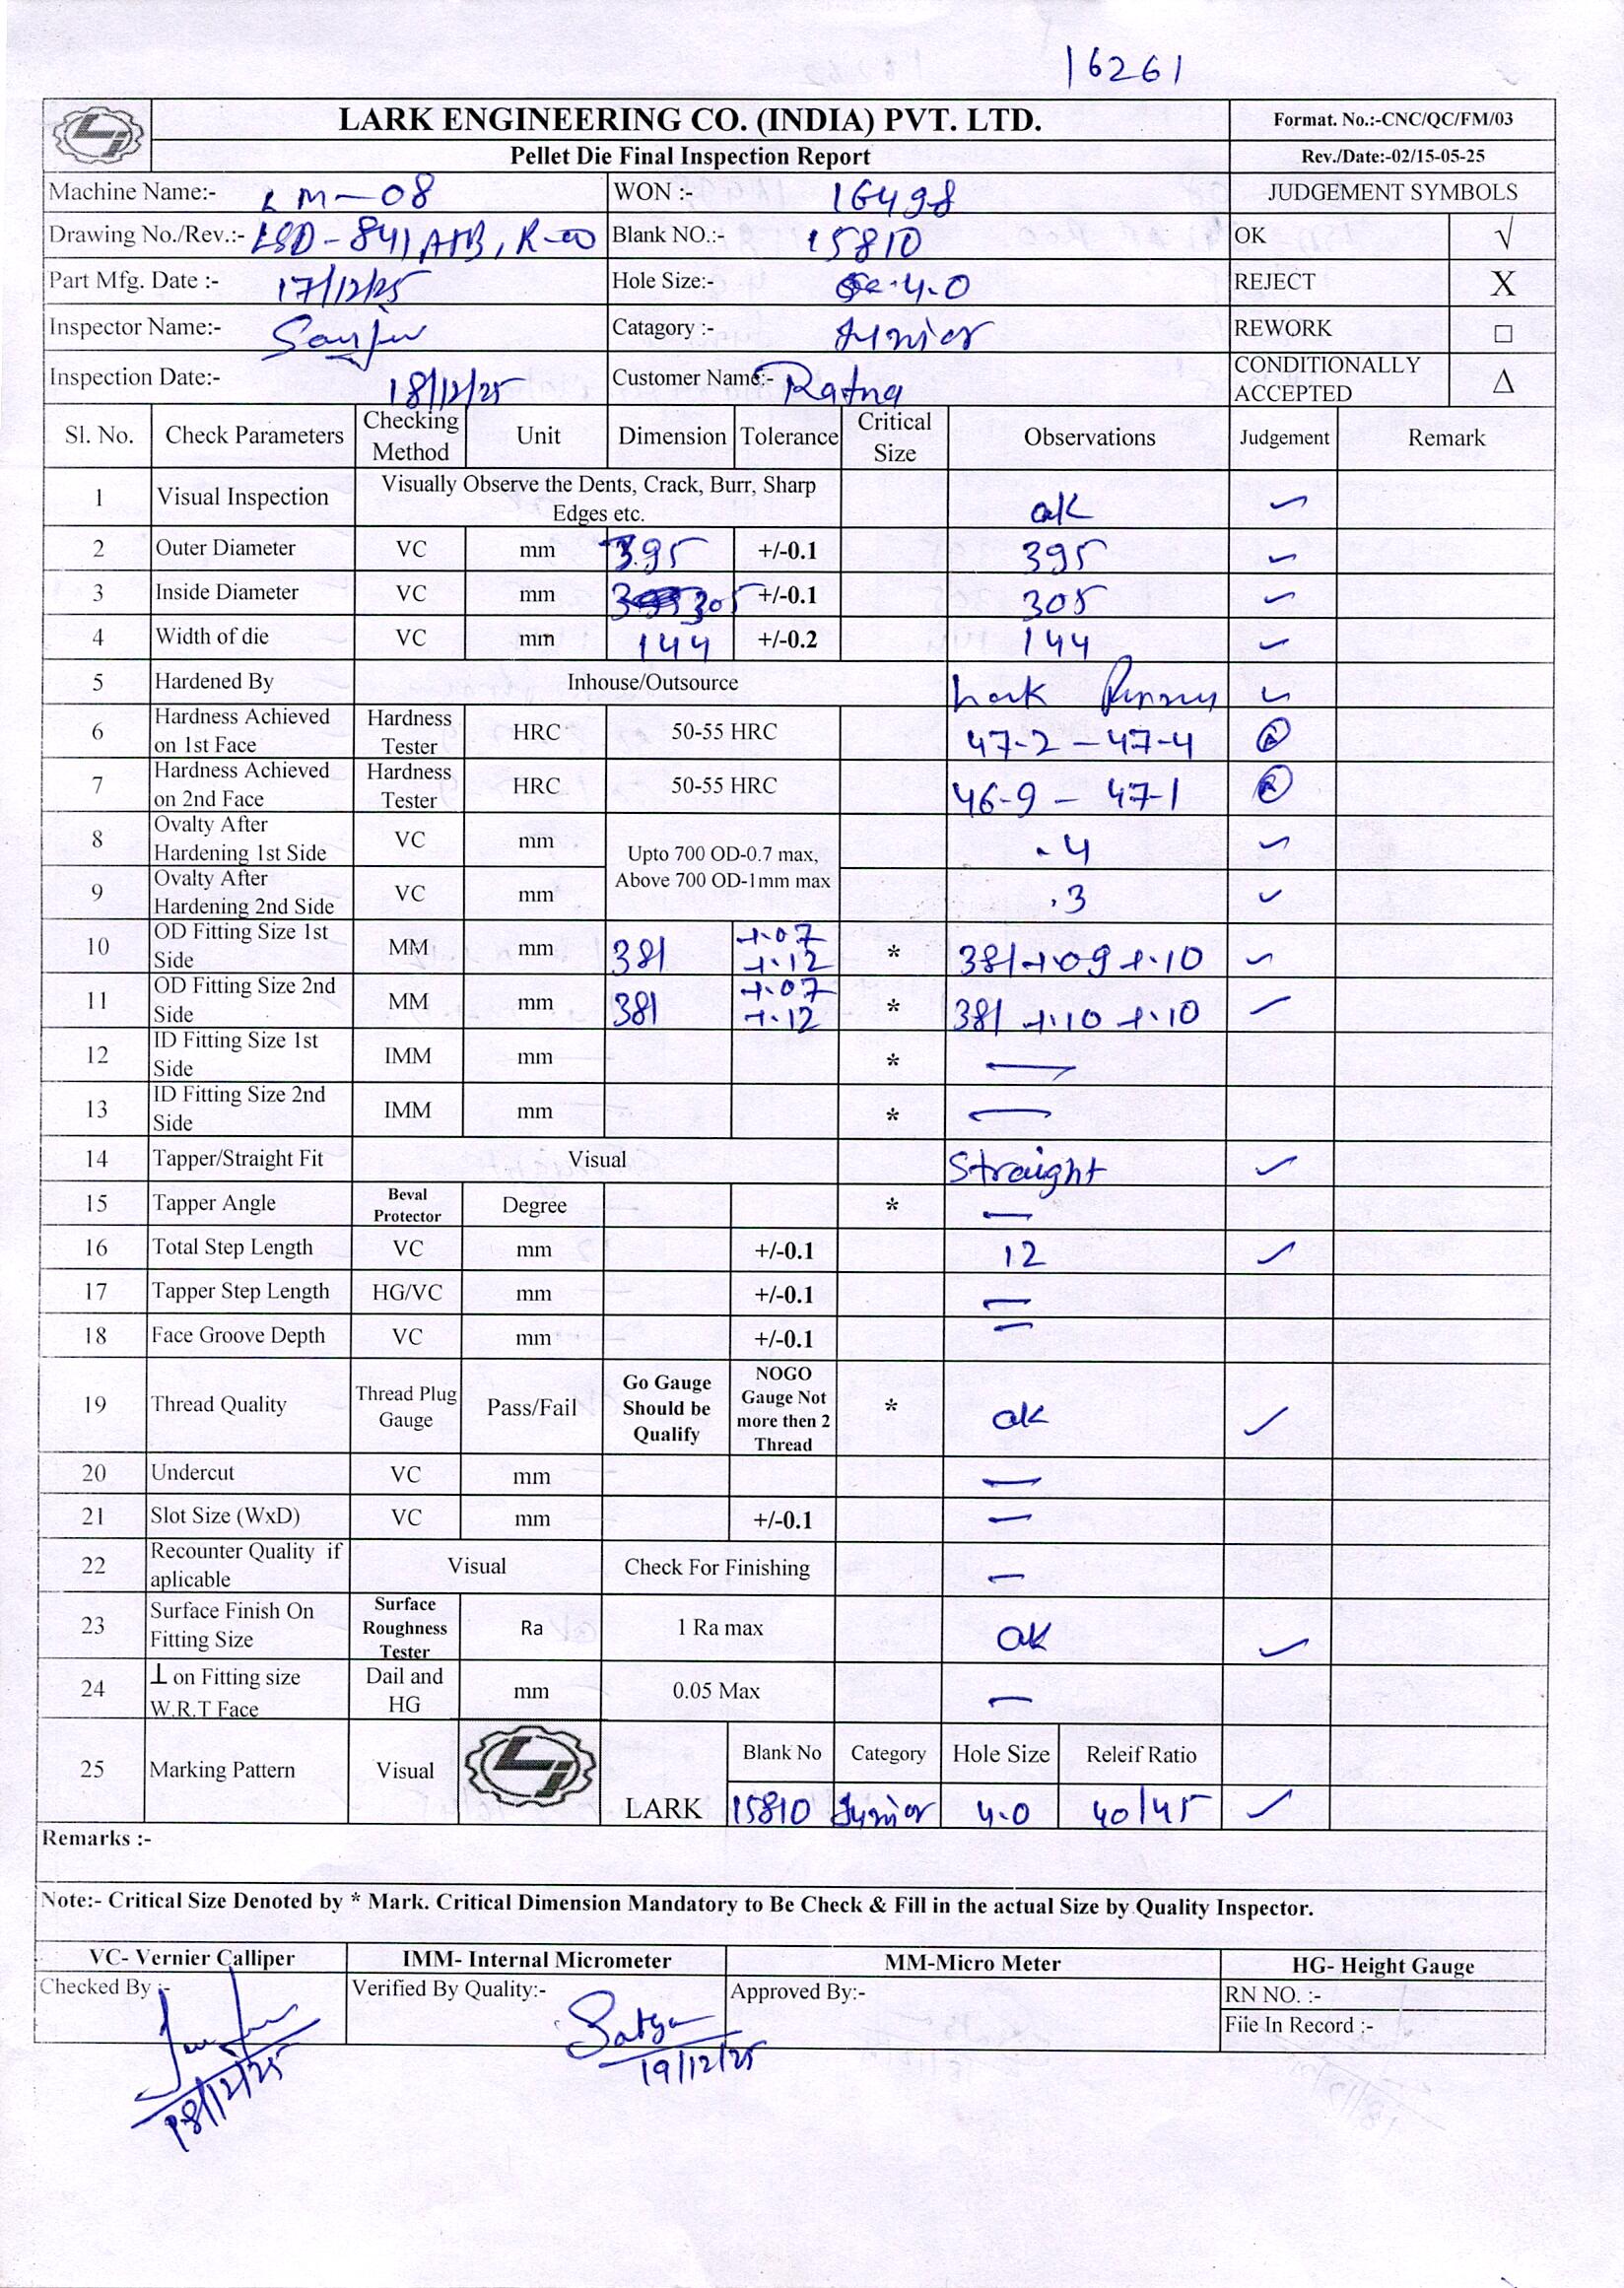 16261
LARK ENGINEERING CO. (INDIA) PVT. LTD.
Format. No.:-CNC/QC/FM/03
Pellet Die Final Inspection Report
Rev./Date:-02/15-05-25
Machine Name:- LM-08 WON :- 16498 JUDGEMENT SYMBOLS
Drawing No./Rev.:- LSD-841 Blank NO.:- 15810 OK √
Part Mfg. Date :- 17/12/25 Hole Size:- 4.0 REJECT X
Inspector Name:- Catagory :- Junior REWORK □
Inspection Date:- 18/12/25 Customer Name:- Ratna CONDITIONALLY ACCEPTED Δ
Sl. No. Check Parameters Checking Method Unit Dimension Tolerance Critical Size Observations Judgement Remark
1 Visual Inspection Visually Observe the Dents, Crack, Burr, Sharp Edges etc. ok ✓
2 Outer Diameter VC mm 395 +/-0.1 395 ✓
3 Inside Diameter VC mm 305 +/-0.1 305 ✓
4 Width of die VC mm 144 +/-0.2 144 ✓
5 Hardened By Inhouse/Outsource Lark ✓
6 Hardness Achieved on 1st Face Hardness Tester HRC 50-55 HRC 47-2 - 47-4
7 Hardness Achieved on 2nd Face Hardness Tester HRC 50-55 HRC 46-9 - 47-1
8 Ovalty After Hardening 1st Side VC mm Upto 700 OD-0.7 max, Above 700 OD-1mm max .4 ✓
9 Ovalty After Hardening 2nd Side VC mm .3 ✓
10 OD Fitting Size 1st Side MM mm 381 +.07 +.12 * 381 +.09 +.10 ✓
11 OD Fitting Size 2nd Side MM mm 381 +.07 +.12 * 381 +.10 +.10 ✓
12 ID Fitting Size 1st Side IMM mm * —
13 ID Fitting Size 2nd Side IMM mm * —
14 Tapper/Straight Fit Visual Straight ✓
15 Tapper Angle Beval Protector Degree * —
16 Total Step Length VC mm +/-0.1 12 ✓
17 Tapper Step Length HG/VC mm +/-0.1 —
18 Face Groove Depth VC mm +/-0.1 —
19 Thread Quality Thread Plug Gauge Pass/Fail Go Gauge Should be Qualify NOGO Gauge Not more then 2 Thread * ok ✓
20 Undercut VC mm —
21 Slot Size (WxD) VC mm +/-0.1 —
22 Recounter Quality if aplicable Visual Check For Finishing —
23 Surface Finish On Fitting Size Surface Roughness Tester Ra 1 Ra max ok ✓
24 ⊥ on Fitting size W.R.T Face Dail and HG mm 0.05 Max —
25 Marking Pattern Visual LARK Blank No Category Hole Size Releif Ratio
15810 Junior 4.0 40/45 ✓
Remarks :-
Note:- Critical Size Denoted by * Mark. Critical Dimension Mandatory to Be Check & Fill in the actual Size by Quality Inspector.
VC- Vernier Calliper IMM- Internal Micrometer MM-Micro Meter HG- Height Gauge
Checked By :- Verified By Quality:- Approved By:- RN NO. :-
File In Record :-
Satya
18/12/25 19/12/25